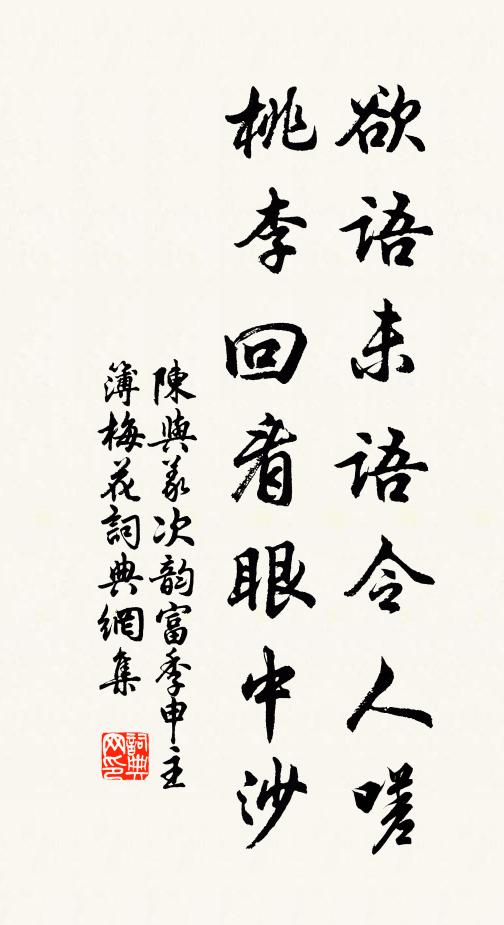 欲語未語令人嗟
桃李回看眼中沙
陳與義次韵富季申主
簿梅花詞典網集
詞典
网印